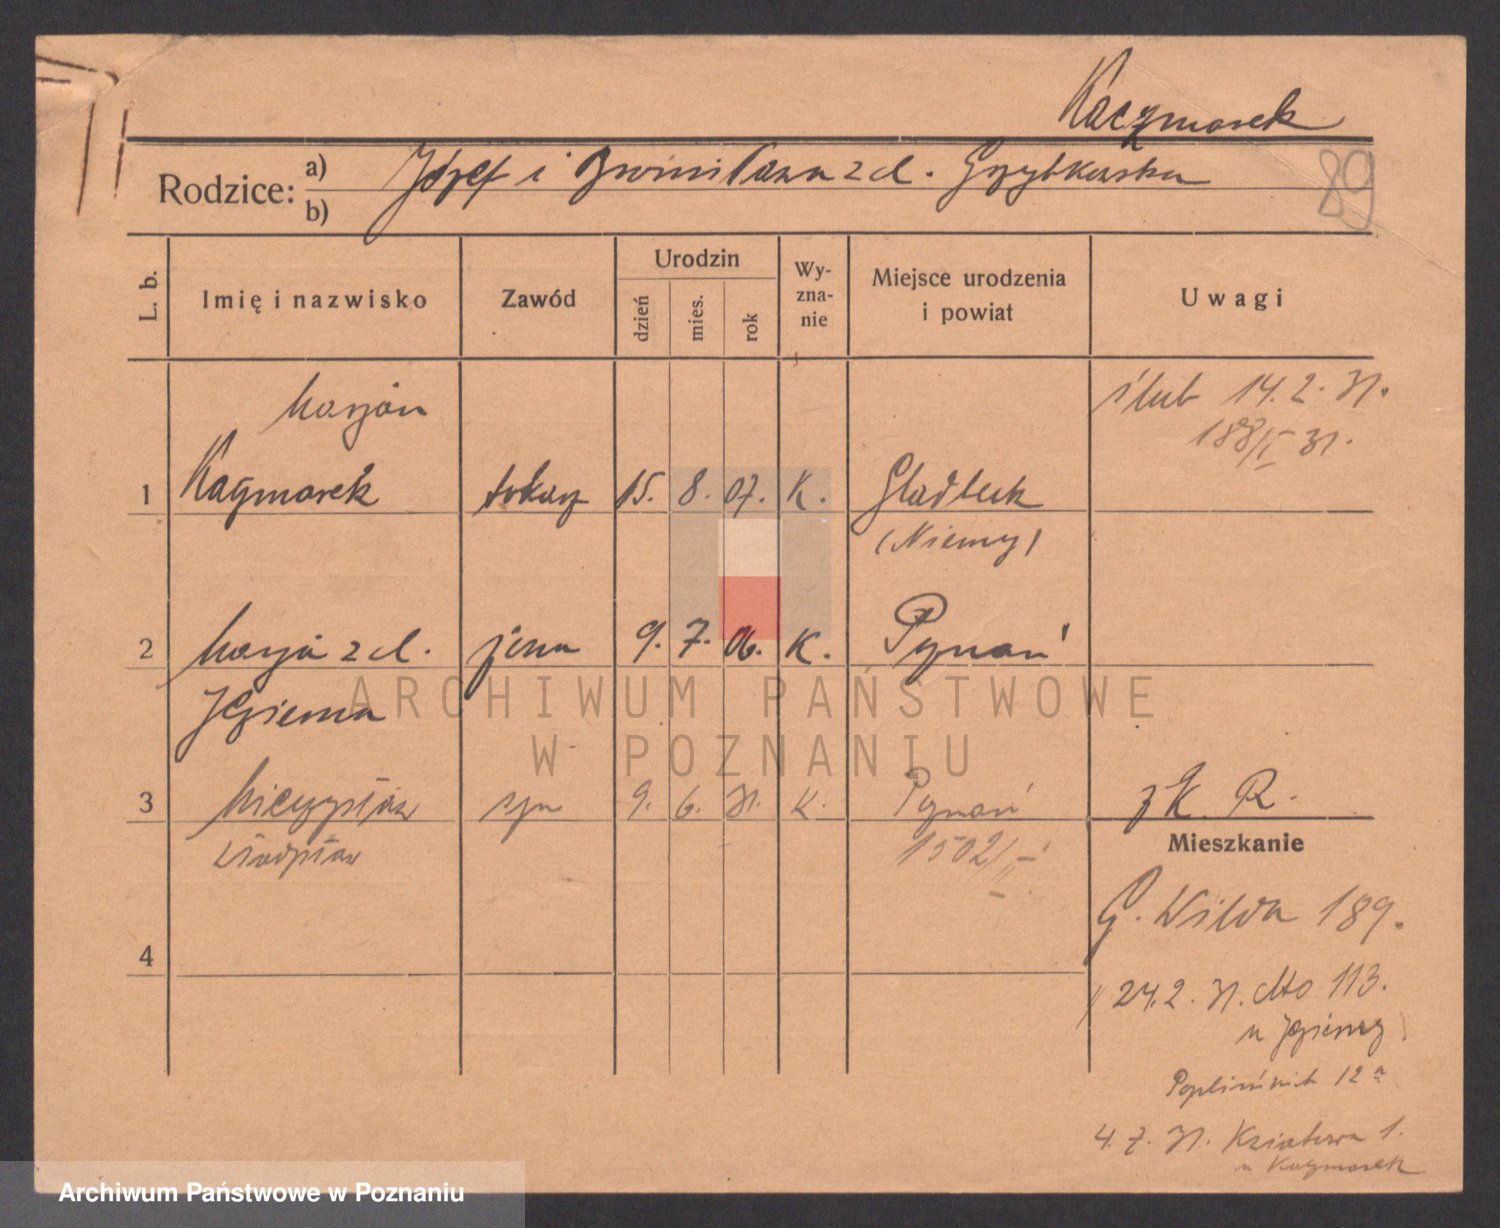 Kaczmarek
Rodzice: a) Józef i Bronisława z d. Grzybkowska
b)
89
L. b.
Imię i nazwisko
Zawód
Urodzin
dzień
mies.
rok
Wy-
zna-
nie
Miejsce urodzenia
i powiat
Uwagi
Marjan
ślub 14.2.31.
188/I 31.
1 Kaczmarek tokarz 15. 8. 07. K. Gladbeck
(Niemcy)
2 Marja z d. żona 9. 7. 06. K. Poznań
Jezierna
3 Mieczysław syn 9. 6. 31. K. Poznań
1502/II
z K. R.
Mieszkanie
G. Wilda 189.
4
24.2.31. dto 113.
u Jezierny
12a
4.7.31. 1.
u Kaczmarek
ARCHIWUM PAŃSTWOWE
W POZNANIU
Archiwum Państwowe w Poznaniu